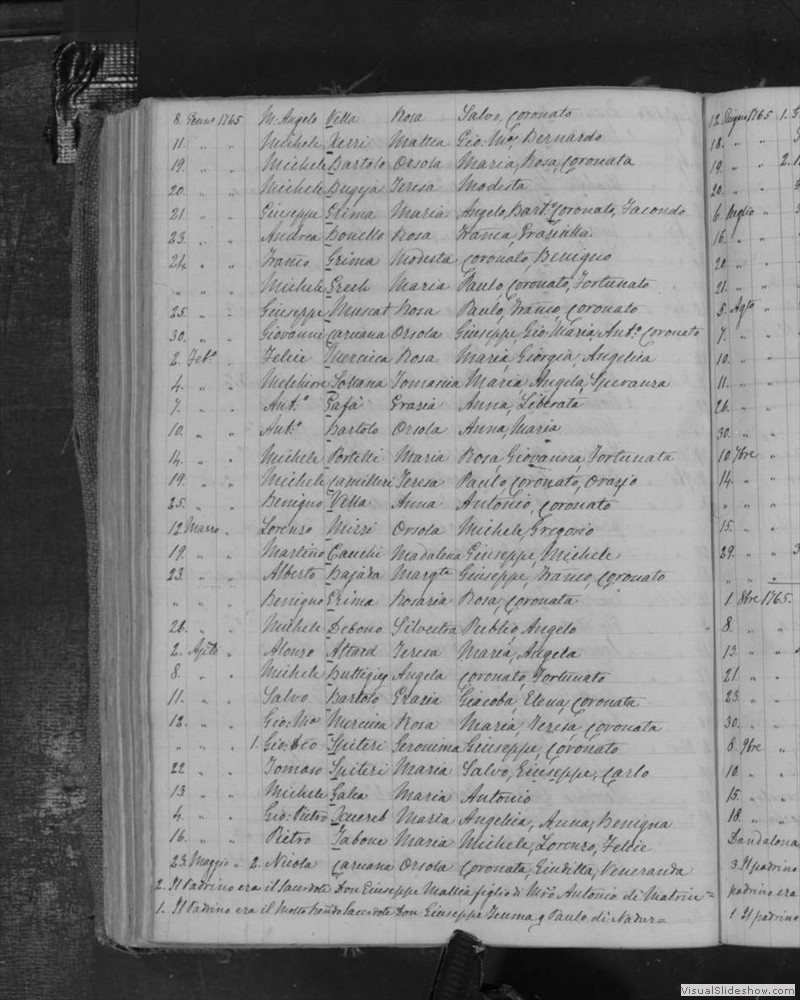 8. Genn° 1765 M. Angelo Vella Rosa Salvo, Coronato
11. " " Michele Xerri Mattea Gio: Ma, Bernardo
19. " " Michele Bartolo Orsola Maria, Rosa, Coronata
20. " " Michele Bugeja Teresa Modesta
21. " " Giuseppe Grima Maria Angelo, Bart°, Coronato, Facondo
23. " " Andrea Bonello Rosa Franca, Graziulla
24. " " Franco Grima Modesta Coronato, Benigno
" " " Michele Grech Maria Paulo Coronato, Fortunato
25. " " Giuseppe Muscat Rosa Paulo, Franco, Coronato
30. " " Giovanni Caruana Orsola Giuseppe, Gio Maria, Ant.° Coronato
2. Feb.° " Felice Mercieca Rosa Maria, Giorgia, Angelica
4. " " Melchiore Sultana Tomasina Maria Angela, Speranza
7. " " Ant.° Gafà Grazia Anna, Liberata
10. " " Ant.° Bartolo Orsola Anna, Maria
14. " " Michele Portelli Maria Rosa, Giovanna, Fortunata
19. " " Michele Camilleri Teresa Paulo, Coronato, Orazio
25. " " Benigno Vella Anna Antonio, Coronato
12. Marzo " Lorenzo Mizzi Orsola Michele, Gregorio
19. " " Martino Cauchi Madalena Giuseppe, Michele
23. " " Alberto Bajada Margta Giuseppe, Franco, Coronato
" " " Benigno Grima Rosaria Rosa, Coronata
26. " " Michele Debono Silvestra Publio, Angelo
2. Aple " Alonso Attard Teresa Maria, Angela
8. " " Michele Buttigieg Angela Coronato, Fortunato
11. " " Salvo Bartolo Grazia Giacoba, Elena, Coronata
12. " " Gio: Ma Mercieca Rosa Maria, Teresa, Coronata
" " " 1. Gio: Deo Spiteri Geronima Giuseppe, Coronato
22 " " Tomaso Spiteri Maria Salvo, Giuseppe, Carlo
13 " " Michele Galea Maria Antonio
4. " " Gio: Pietro Xuereb Maria Angelica, Anna, Benigna
16. " " Pietro Tabone Maria Michele, Lorenzo, Felice
23. Maggio " 2. Nicola Caruana Orsola Coronata, Giuditta, Veneranda
2. Il Padrino era il Sacerdote Don Giuseppe Mallia figlio di Mro Antonio di Matrice =
1. Il Padrino era il Molto Rendo Sacerdote Don Giuseppe Teuma q Paulo di Nadur =
12 Giugno 1765 1. G
18. " "
19. " " 2.
20. " "
6. Luglio "
16. " "
20. " "
21. " "
5. Agto "
7. " "
10. " "
11. " "
26. " "
30. " "
10. 7bre "
14. " "
" " "
15. " "
29. " " 3
" " "
1. 8bre 1765.
8. " "
13. " "
21. " "
23. " "
30. " "
8. 9bre "
10. " "
15. " "
18. " "
Dandalona
3. Il padrino
padrino era
1. Il padrino
VisualSlideshow.com